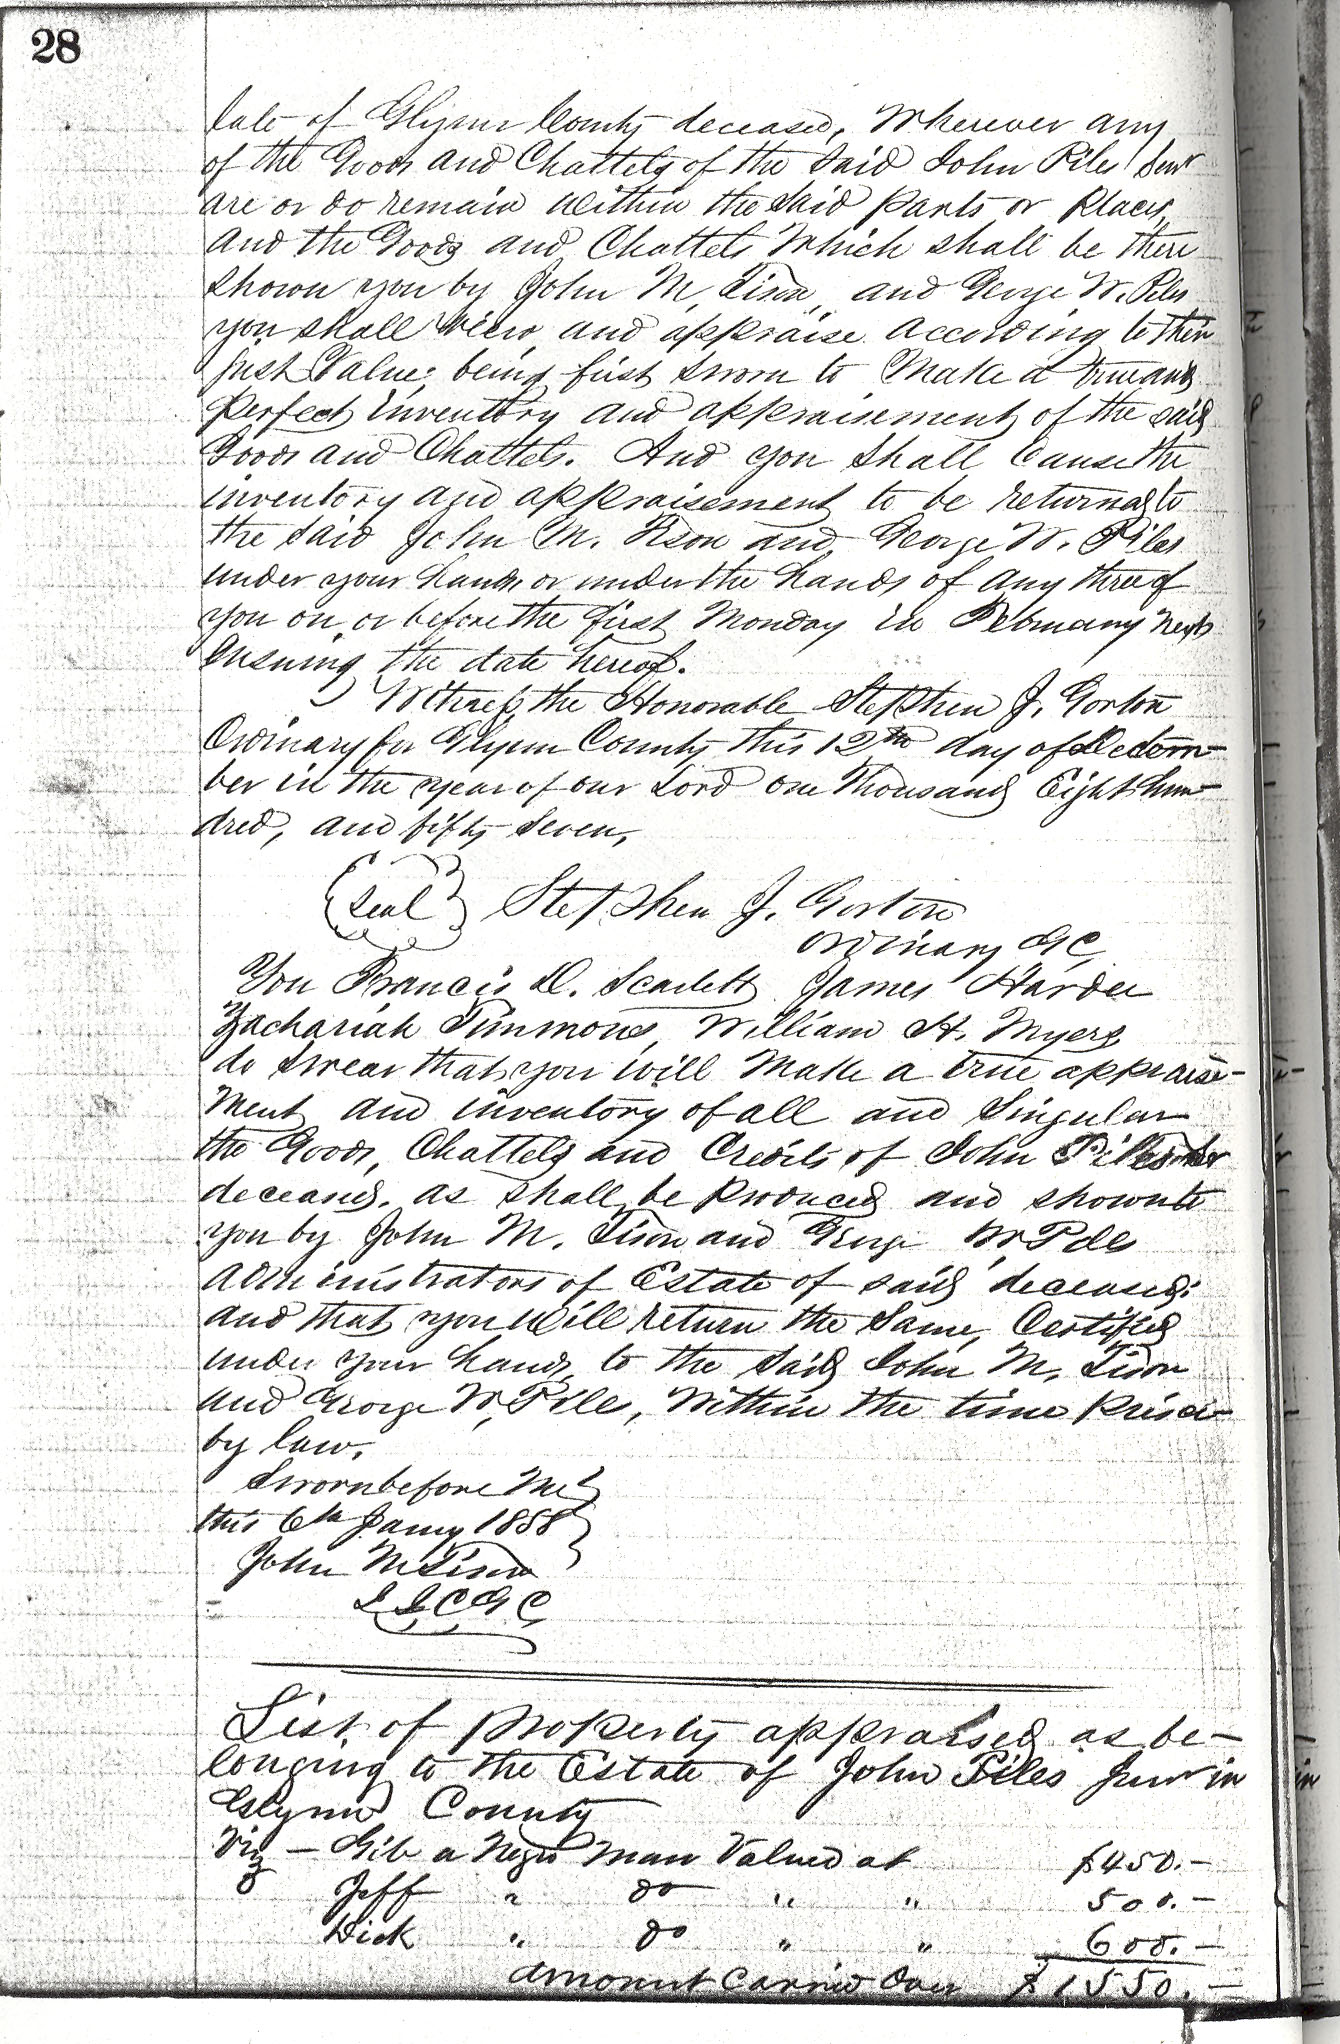 28
late of Glynn County deceased, Wherever any
of the Goods and Chattels of the said John Piles Senr
are or do remain within the said parts or places,
and the Goods and Chattels Which shall be there
shown you by John M, Tison, and George W. Piles
you shall view and appraise according to their
just Value; being first sworn to Make a true and
perfect inventory and appraisement of the said
Goods and Chattels. And you shall Cause the
inventory and appraisement to be returned to
the said John M. Tison and George W. Piles
under your hands or under the hands of any three of
you on or before the first Monday in February next
Ensuing the date hereof.
Witness the Honorable Stephen J. Gorton
Ordinary for Glynn County this 12th day of Decem-
ber in the year of our Lord one thousand Eight hun-
dred, and fifty seven,
Seal Stephen J. Gorton
Ordinary GC,
You Francis D. Scarlett James Hardee
Zachariah Timmons, William H. Myers
do swear that you will Make a true appraise-
ment and inventory of all and Singular
the Goods, Chattels and Credits of John Piles
deceased. as shall be produced and shown to
you by John M. Tison and George W Piles
Administrators of Estate of said deceased:
and that you will return the Same, Certified
under your hands, to the said John M, Tison
and George W, Piles, within the time
by law.
Sworn before Me
this 6th Jany 1858
John M Tison
J J C G C
List of property appraised as be-
longing to the Estate of John Piles Junr in
Glynn County
Viz — Gib a Negro Man Valued at $450.—
Jeff " do " " 500.—
Dick " do " " 600.—
Amount Carried Over $1550.—